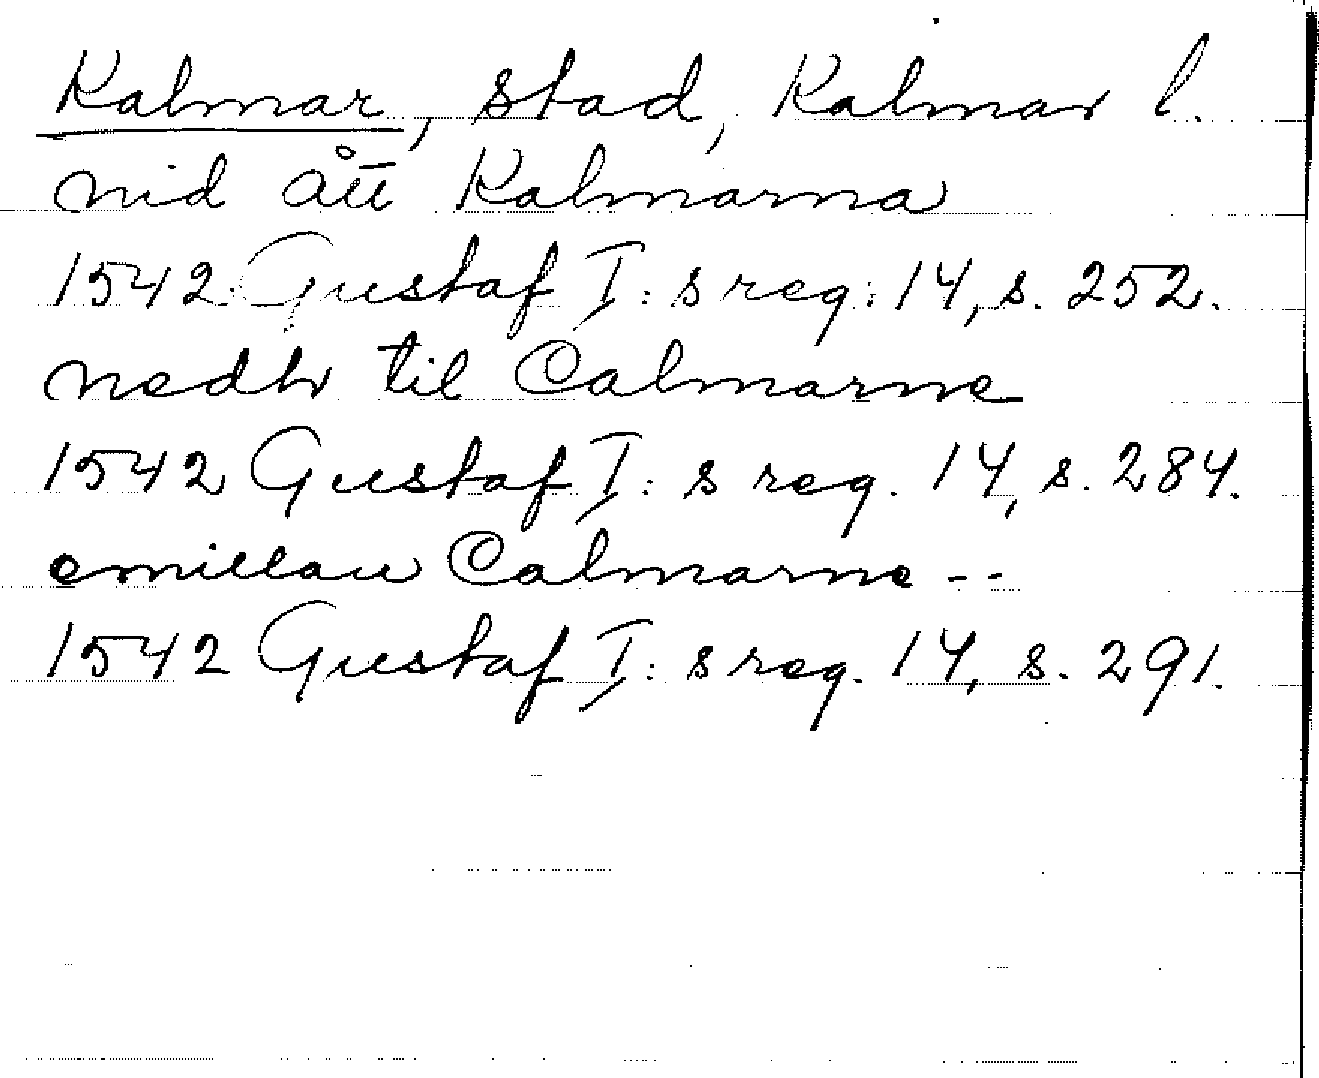 Kalmar, stad, Kalmar l.
nid ått Kalmarna
1542 Gustaf I: s reg. 14, s. 252.
nedhr til Calmarne
1542 Gustaf I: s reg. 14, s. 284.
emillan Calmarne --
1542 Gustaf I: s reg. 14, s. 291.